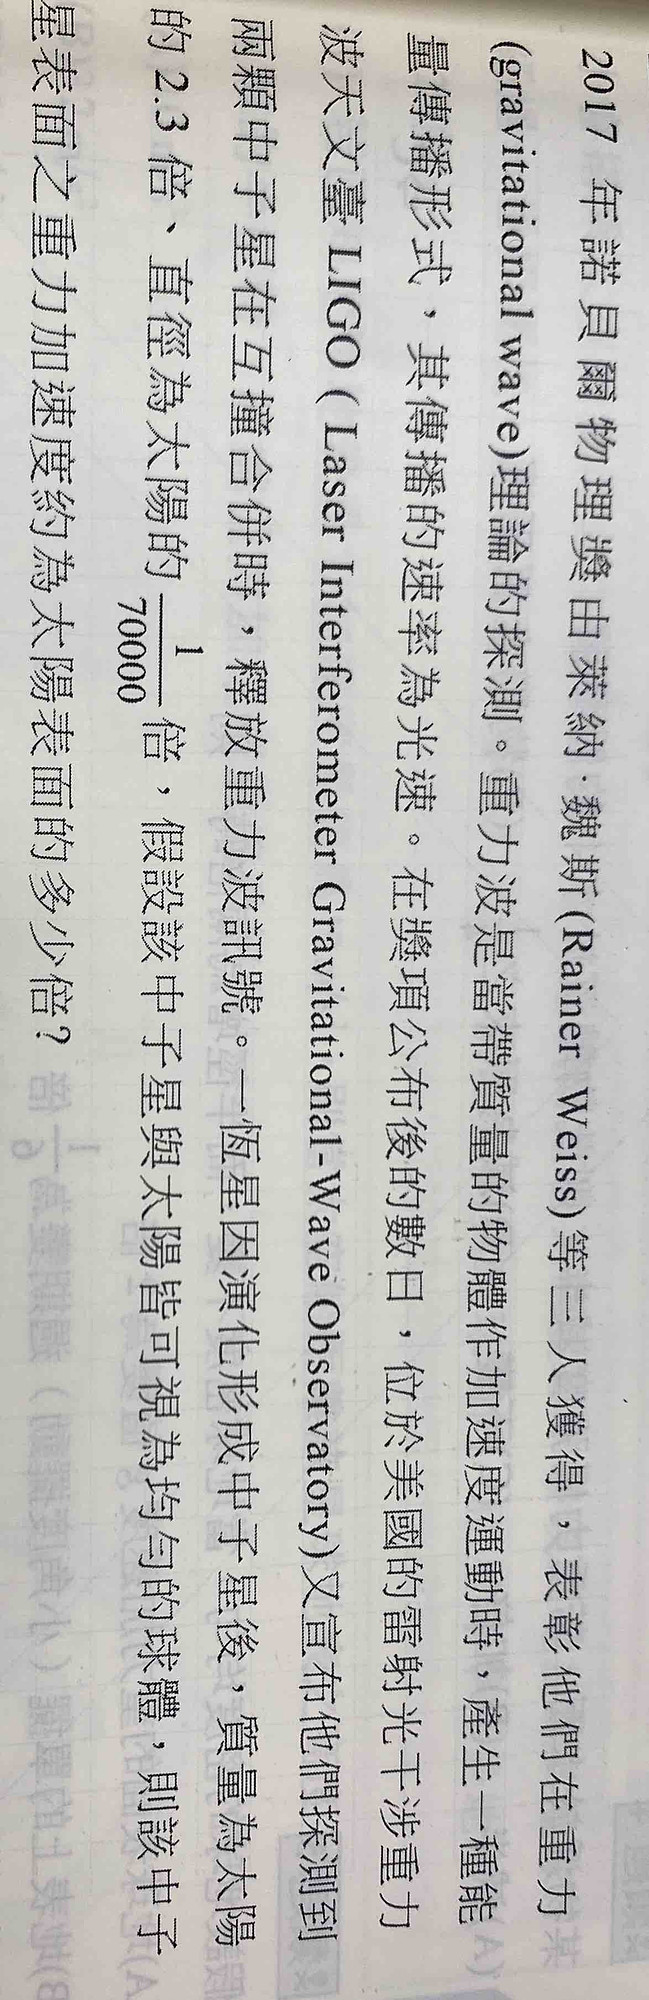 2017 年諾貝爾物理獎由萊納·魏斯(Rainer Weiss)等三人獲得，表彰他們在重力
(gravitational wave)理論的探測。重力波是當帶質量的物體作加速度運動時，產生一種能
量傳播形式，其傳播的速率為光速。在獎項公布後的數日，位於美國的雷射光干涉重力
波天文臺 LIGO ( Laser Interferometer Gravitational-Wave Observatory)又宣布他們探測到
兩顆中子星在互撞合併時，釋放重力波訊號。一恆星因演化形成中子星後，質量為太陽
的 2.3 倍、直徑為太陽的 1/70000 倍，假設該中子星與太陽皆可視為均勻的球體，則該中子
星表面之重力加速度約為太陽表面的多少倍？